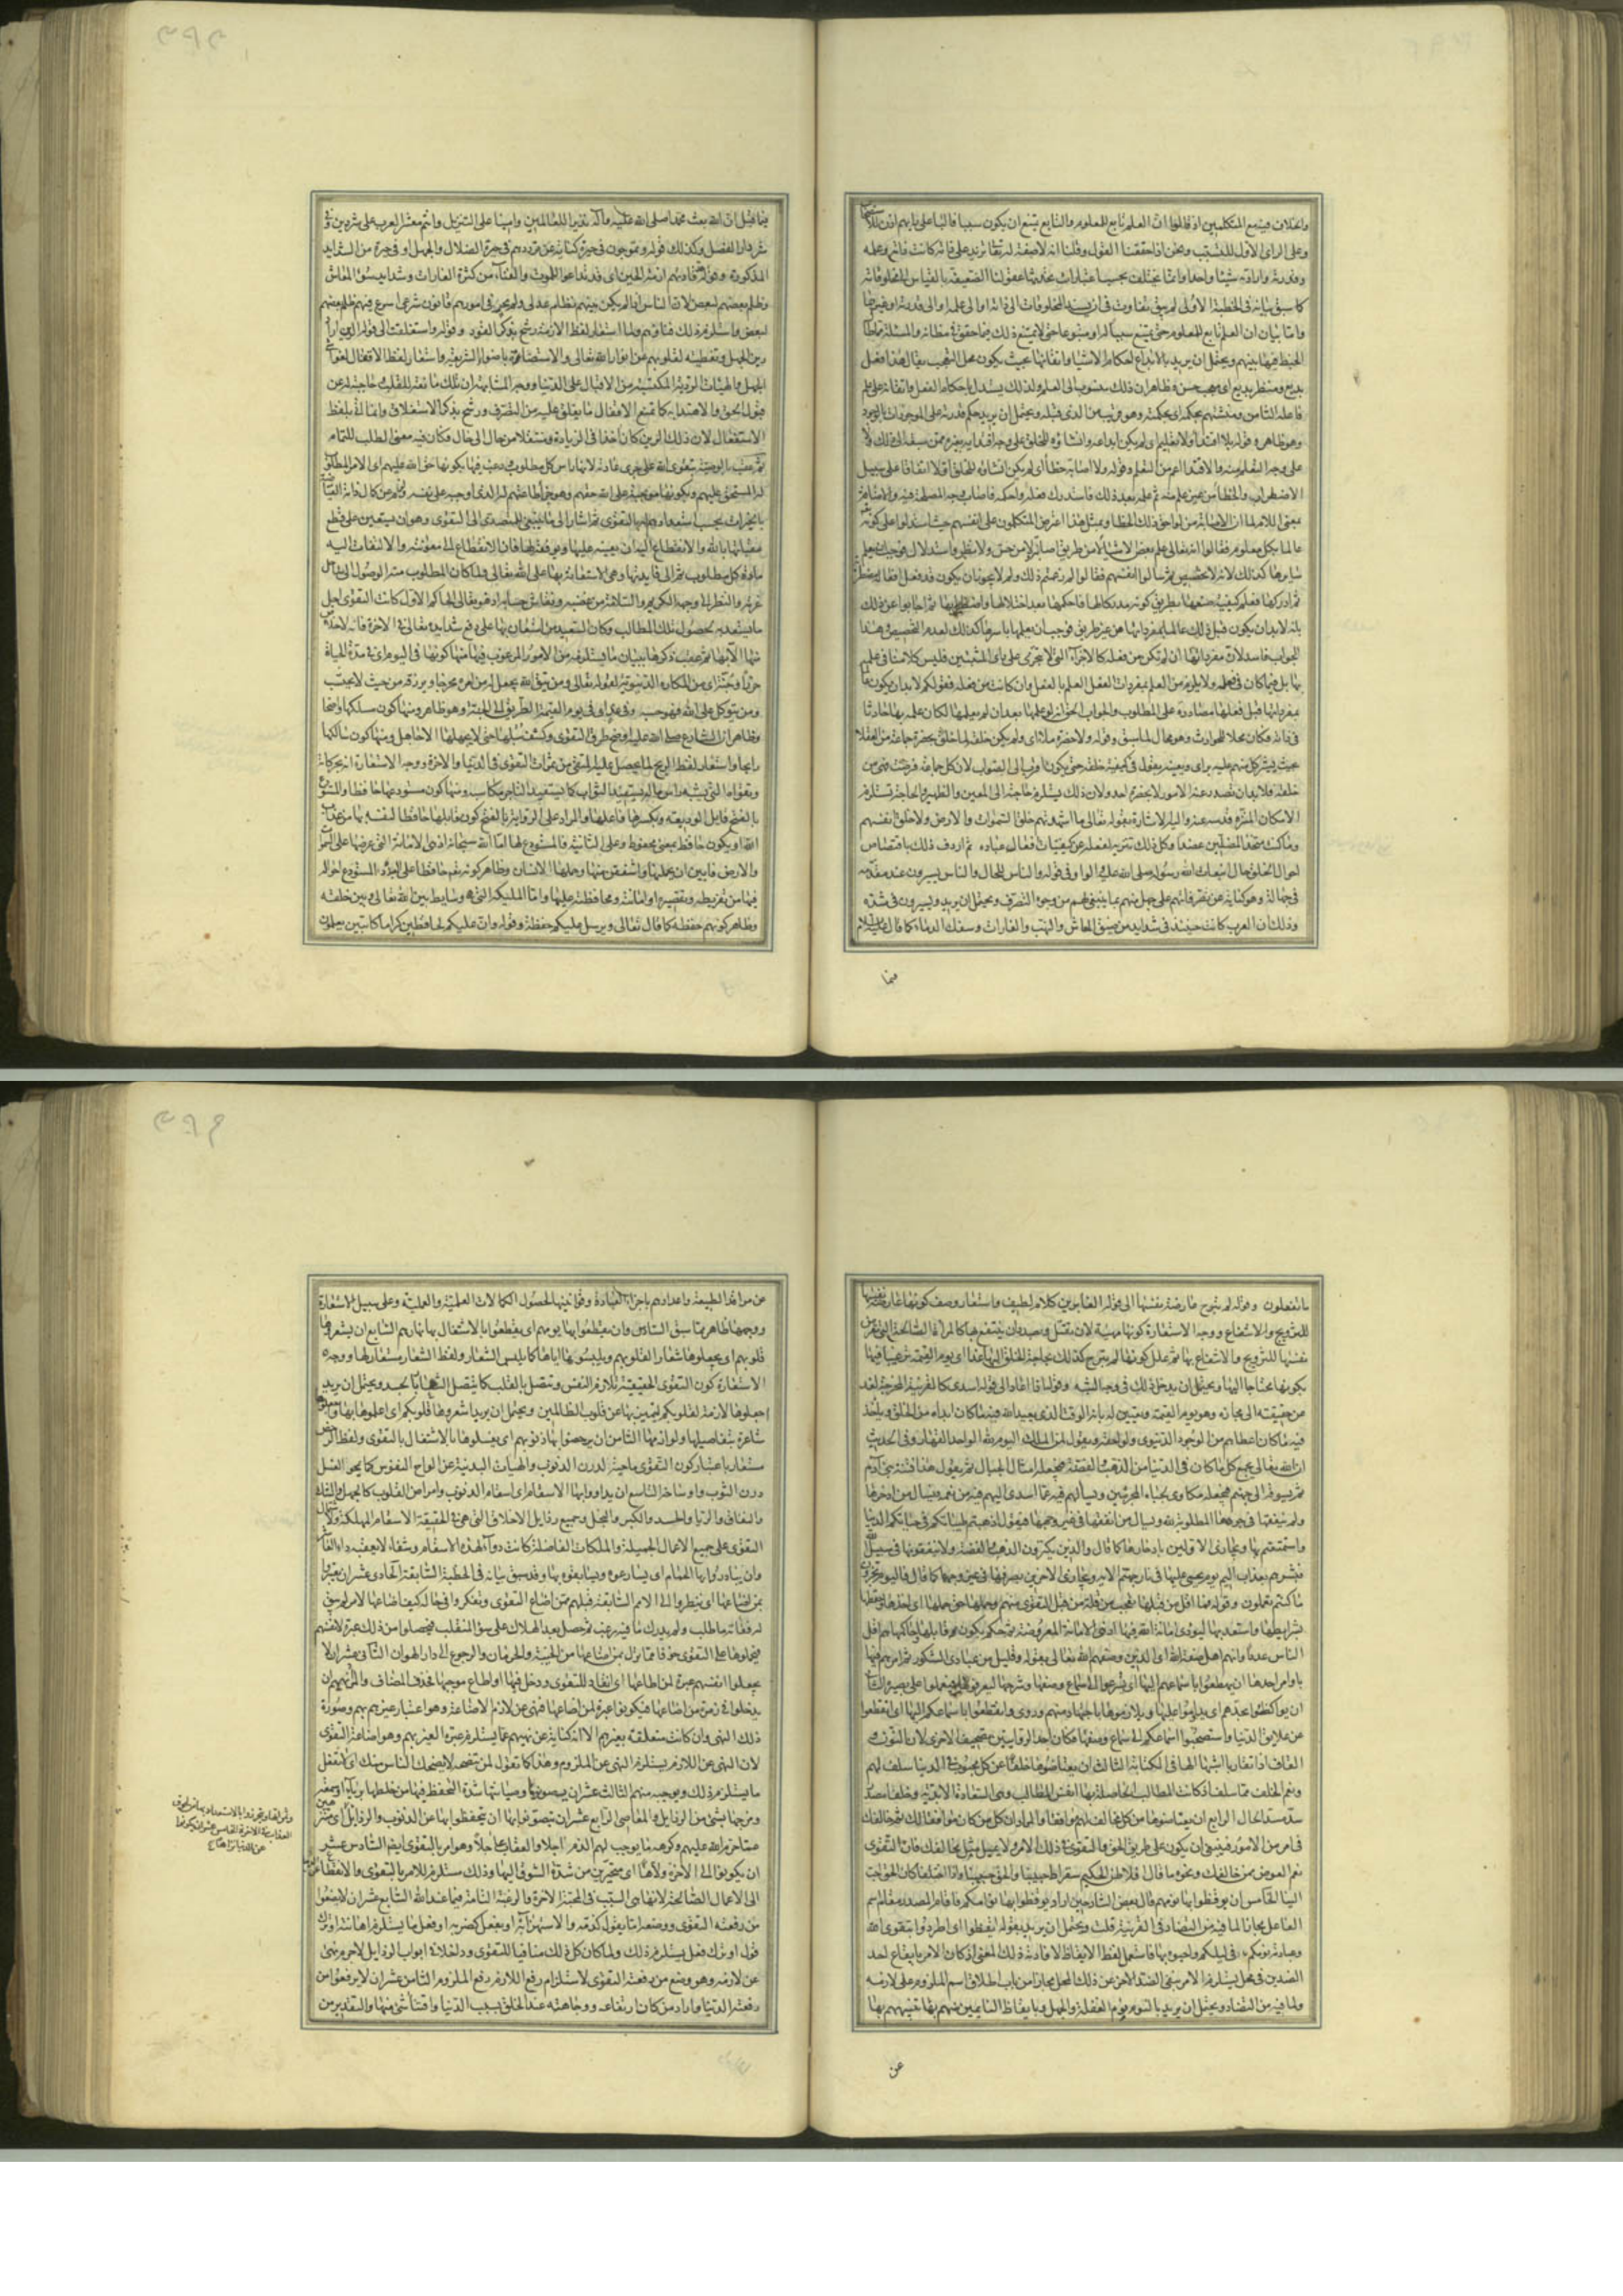 واختلاف فيتبع المتكلمين اذ قالوا ان العلم تابع للمعلوم والتابع يمتنع ان يكون سببا
وعلى الراى الاول للتسبب ونحن اذا حققنا القول وقلنا انه لا صفة له تعالى تزيد على ذاته كانت ذاته وعلمه
وقدرته وارادته شيئا واحدا وانما تختلف بحسب اعتبارات تحدثها عقولنا الضعيفة بالقياس الى مخلوقاته
كما سبق بيانه فى الخطبة الاولى لم يبق تفاوت فى ان يستند المخلوقات الى ذاته او الى علمه او الى قدرته او غيرها
واما بيان ان العلم تابع للمعلوم حتى يمتنع سببا له او متبوعا حتى لا يمتنع ذلك فمما حقق فى مظانه والمسئلة مما طال
الخبط فيها بينهم ويحتمل ان يريد بالابداع احكام الاشياء واتقانها بحيث يكون محل التعجب يقال هذا فعل
بديع ومنظر بديع اى معجب حسن وظاهر ان ذلك منسوب الى العلم ولذلك يستدل باحكام الفعل واتقانه على علم
فاعله الثامن ومنشئهم بحكمه اى بحكمته وهو قريب من الذى قبله ويحتمل ان يريد حكم قدرته على الموجودات بالوجود
وهو ظاهر وقوله بلا اقتداء ولا تعليم اى لم يكن ابداعه وانشاؤه للخلق على وجه اقتدائه بغيره ممن سبقه الى ذلك ولا
على وجه التعلم منه والاقتداء اعم من التعلم وقوله ولا اصابة خطأ اى لم يكن انشاؤه للخلق اولا اتفاقا على سبيل
الاضطراب والخطأ من غير علم منه ثم علمه بعد ذلك فاستدرك فعله واحكمه فاصاب وجه المصلحة فيه والاضافة
بمعنى اللام لما ان الاصابة من لواحق ذلك الخطأ وبمثل هذا اعترض المتكلمون على انفسهم حيث استدلوا على كونه
عالما بكل معلوم فقالوا انه تعالى علم بعض الاشياء لا من طريق اصلا لا من حس ولا نظر واستدلال فوجب ان يعلم
سايرها كذلك لانه لا تخصيص ثم سالوا انفسهم فقالوا لم زعمتم ذلك ولم لا يجوز ان يكون قد فعل افعاله مضطربة
ثم ادركها فعلم كيفية صنعها بطريق كونه مدركا لها فاحكمها بعد اختلالها واضطرابها ثم اجابوا عن ذلك
بانه لا بد ان يكون قبل ذلك عالما بمفرداتها من غير طريق فوجب ان يعلمها باسرها كذلك لعدم التخصيص وهذا
الجواب فاسد لان مفرداتها ان لم تكن من فعله كالاجزاء التى لا تتجزى على راى المثبتين فليس كلامنا فى علمه
بها بل فيما كان فى فعله ولا يلزم من العلم بمفردات الفعل العلم بالفعل وان كانت من فعله فقولكم لا بد ان يكون عالما
بمفرداتها قبل فعلها مصادرة على المطلوب والجواب الحق انه لو علمها بعد ان لم يعلمها لكان علمه بها حادثا
فى ذاته فكان محلا للحوادث وهو محال لما سبق وقوله ولا حضرة ملاء اى ولم يكن خلقه لما خلق بحضرة جماعة من العقلاء
بحيث يشير كل منهم عليه براى ويعينه بقول فى كيفية خلقه حتى يكون اقرب الى الصواب لان كل جماعة فرضت فهى من
خلقه فلا بد ان تصدر عنه الامور لا بحضرة احد ولان ذلك يستلزم حاجته الى المعين والظهير والحاجة تستلزم
الامكان المنزه قدسه عنه واليه الاشارة بقوله تعالى ما اشهدتهم خلق السموات والارض ولا خلق انفسهم
وما كنت متخذ المضلين عضدا وكل ذلك تنزيه لفعله عن كيفيات افعال عباده ثم اردف ذلك باقتصاص
احوال الخلق حال انبعاث الله رسوله صلى الله عليه الواو فى قوله والناس للحال والناس يسيرون عند مقدمه
فى جهالة وهو كناية عن تفرقاتهم على جهل منهم بما ينبغى لهم من وجوه التصرف ويحتمل ان يريد ويسيرون فى شدة
وذلك ان العرب كانت حينئذ فى شدايد من ضيق المعاش والنهب والغارات وسفك الدماء كما قال عليه السلام
فيما
فيما قبل ان الله بعث محمدا صلى الله عليه وآله نذيرا للعالمين وامينا على التنزيل وانتم معشر العرب على شر دين وفى
شر دار الفصل وكذلك قوله ويموجون فى حيرة كناية عن ترددهم فى حيرة الضلال والجهل او فى حيرة من الشدايد
المذكورة وقوله قادتهم ازمة الحين اى قد تداعوا للموت والفناء من كثرة الغارات وشدايد سوء المعاش
وظلم بعضهم لبعض لان الناس اذا لم يكن بينهم نظام عدلى ولم يجر فى امورهم قانون شرعى اسرع فيهم ظلم بعضهم
لبعض واستلزم ذلك فناؤهم ولما استعار لفظ الازمة رشح بذكر القود وقوله واستغلقت الى قوله الرين اراد
رين الجهل وتغطيته لقلوبهم عن انوار الله تعالى والاستضاءة باضواء الشريعة واستعار لفظ الاقفال لغواشى
الجهل والهيئات الردية المكتسبة من الاقبال على الدنيا ووجه المشابهة ان تلك مانعة للقلب حاجبة له عن
قبول الحق والاهتداء به كما تمنع الاقفال ما يغلق عليه من التصرف ورشح بذكر الاستغلاق وانما اتى بلفظ
الاستفعال لان ذلك الرين كان آخذا فى الزيادة ومنتقلا من حال الى حال فكان فيه معنى الطلب للتمام
ثم عقب بالوصية بتقوى الله على جرى عادته لانها راس كل مطلوب ورغب فيها بكونها حق الله عليهم اى الامر المطلوب
له المستحق عليهم وبكونها موجبة على الله حقهم وهو جزاء طاعتهم له الذى اوجبه على نفسه
بالخيرات بحسب استعدادهم لها بالتقوى ثم اشار الى ما ينبغى للمتصدى الى التقوى وهو ان يستعين على قطع
عقباتها بالله والانقطاع اليه ان يعينه عليها ويوفقه لها فان الانقطاع الى معونته والالتفات اليه
مادة كل مطلوب ثم الى فايدتها وهى الاستعانة بها على الله تعالى ولما كان المطلوب منه الوصول الى ساحل
عزته والنظر الى وجهه الكريم والسلامة من غضبه ونقاش حسابه اذ هو تعالى الحاكم الاول كانت التقوى اجل
ما يستعد به لحصول تلك المطالب وكان السعيد من استعان بها على دفع شدايده تعالى فى الآخرة فانه لا خلاص
منها الا بها ثم عقب ذكرها ببيان ما يستلزمه من الامور المرغوب فيها منها كونها فى اليوم اى فى مدة الحياة
حرزا وجنة اى من المكاره الدنيوية لقوله تعالى ومن يتق الله يجعل له من امره مخرجا ويرزقه من حيث لا يحتسب
ومن يتوكل على الله فهو حسبه وفى غد اى فى يوم القيمة الطريق الى الجنة وهو ظاهر ومنها كون مسلكها واضحا
وظاهر ان الشارع صلى الله عليه اوضح طرق التقوى وكشف سبلها حتى لا يجهلها الا جاهل ومنها كون سالكها
رابحا واستعار لفظ الربح لما يحصل عليه المتقى من ثمرات التقوى فى الدنيا والآخرة ووجه الاستعارة انه بحركاته
وتقواه التى يشبه راس ماله يستفيد الثواب كما يستفيد التاجر مكاسبه ومنها كون مستودعها حافظا والمستودع
بالفتح قابل الوديعة وبكسرها فاعلها والمراد على الرواية بالفتح كون قابلها حافظا لنفسه بها من عذاب
الله او يكون حافظ بمعنى محفوظ وعلى الثانية فالمستودع لها اما الله سبحانه اذ هى الامانة التى عرضها على السموات
والارض فابين ان يحملنها واشفقن منها وحملها الانسان وظاهر كونه تعالى حافظا على العبد المستودع احواله
فيها من تفريطه وتقصيره وامانته ومحافظته عليها واما الملئكة التى هى وسايط بين الله تعالى وبين خلقه
وظاهر كونهم حفظة كما قال تعالى ويرسل عليكم حفظة وقوله وان عليكم لحافظين كراما كاتبين يعلمون
ما تفعلون وقوله لم تبرح عارضة نفسها الى قوله الغابرين كلام لطيف واستعار وصف كونها عارضة نفسها
للتزويج والانتفاع ووجه الاستعارة كونها مهيأة لان تقبل وبصدد ان ينتفع بها كالمرأة الصالحة التى تعرض
نفسها للتزويج والانتفاع بها ثم علل كونها لم تبرح كذلك بحاجة الخلق اليها غدا اى يوم القيمة ترغيبا فيها
بكونها محتاجا اليها ويحتمل ان يدخل ذلك فى وجه الشبه وقوله اذا اعاد الى قوله اسدى كالقرينة المخرجة لغد
عن حقيقته الى مجازه وهو يوم القيمة وتعيين له بانه الوقت الذى يعيد الله فيه ما كان ابداه من الخلق وياخذ
فيه ما كان اعطاهم من الوجود الدنيوى ولواحقه ويقول لمن الملك اليوم لله الواحد القهار وفى الحديث
ان الله تعالى يجمع كل ما كان فى الدنيا من الذهب والفضة فيجعله امثال الجبال ثم يقول هذا فتنة بنى آدم
ثم يسوقه الى جهنم فيجعله مكاوى لجباه المجرمين ويسألهم فيه عما اسدى اليهم فيه من نعمه ويسال من ادخرها
ولم ينفقها فى وجوهها المطلوبة لله ويسال من انفقها فى غير وجهها فيقول اذهبتم طيباتكم فى حياتكم الدنيا
واستمتعتم بها ويجازى الاولين بادخارها كما قال والذين يكنزون الذهب والفضة ولا ينفقونها فى سبيل الله
فبشرهم بعذاب اليم يوم يحمى عليها فى نار جهنم الآية ويجازى الآخرين بصرفها فى غير وجهها كما قال فاليوم تجزون
ما كنتم تعملون وقوله فما اقل من قبلها تعجب من قلة من قبل التقوى منهم وحملها حق حملها اى اخذها وحفظها
بشرايطها واستعد بها ليؤدى امانة الله فيها اذ هى الامانة المعروضة ثم حكم بكون قابلها وحاكيها هم اقل
الناس عددا وانهم اهل صفة الله اى الذين وصفهم الله تعالى بقوله وقليل من عبادى الشكور ثم امرهم فيها
باوامر احدها ان يهطعوا باسماعهم اليها اى يسرعوا الى سماع وصفها وشرحها ليعرفوها فيعملوا على بصيرة الثانى
ان يواكظوا بجدهم اى يداوموا عليها ويلازموها باجتهاد منهم وروى وانقطعوا باسماعكم اليها اى انقطعوا
عن علايق الدنيا واستصحبوا اسماعكم الى سماع وصفها فكان احد الروايتين تصحيف الاخرى لان النون
القاف اذا تقاربا اشبها الهاء فى الكتابة الثالث ان يعتاضوها خلفا عن كل محبوب فى الدنيا سلف لهم
ونعم الخلف مما سلف اذ كانت المطالب الحاصلة بها انفس المطالب وهى السعادة الابدية وخلفا مصدر
سد مسد الحال الرابع ان يعتاضوها من كل مخالف لهم موافقا والمراد ان كل من كان موافقا لك ثم خالفك
فى امر من الامور فينبغى ان يكون على طريق الحق والتقوى فى ذلك الامر ولا يميل مثل مخالفك فان التقوى
نعم العوض ممن خالفك ونحوه ما قال افلاطن الحكيم سقراط حبيبنا والحق حبيبنا واذا اختلفا كان الحق احب
الينا الخامس ان يوقظوا بها نومهم قال بعض الشارحين اراد يوقظوا بها نوامكم فاقام المصدر مقام اسم
الفاعل مجازا لما فيه من التضاد فى القرينة قلت ويحتمل ان يريد بقوله ايقظوا اى اطردوا بتقوى الله
وعبادته نومكم فى ليلكم واحيوه بها فاستعمل لفظ الايقاظ لافادته ذلك المعنى اذ كان الامر بايقاع احد
الضدين فى محل يستلزم الامر بنفى الضد الآخر عن ذلك المحل مجازا من باب اطلاق اسم الملزوم على لازمه
ولما فيه من التضاد ويحتمل ان يريد بالنوم نوم الغفلة والجهل وبايقاظ النايمين منهم بها تنبيههم بها
عن
عن مراقد الطبيعة واعدادهم باجراء العبادة وقوانينها لحصول الكمالات العلمية والعملية وعلى سبيل الاستعارة
ووجهها ظاهر مما سبق السادس وان يقطعوا بها يومهم اى يقطعوا بالاشتغال بها نهارهم السابع ان يشعروها
قلوبهم اى يجعلوها شعارا لقلوبهم ويلبسوها اياها كما يلبس الشعار ولفظ الشعار مستعار لها ووجه
الاستعارة كون التقوى الحقيقية تلازم النفس وتتصل بالقلب كما يتصل الشعار بالجسد ويحتمل ان يريد
اجعلوها لازمة لقلوبكم لتميز بها عن قلوب الظالمين ويحتمل ان يريد اشعروها قلوبكم اى اعلموها بها
شاعرة بتفاصيلها ولوازمها الثامن ان يرحضوا بها ذنوبهم اى يغسلوها بالاشتغال بالتقوى ولفظ الرحض
مستعار باعتبار كون التقوى ماحية لدرن الذنوب والهيئات البدنية عن الواح النفوس كما يمحو الغسل
درن الثوب واوساخه التاسع ان يداووا بها الاسقام اى اسقام الذنوب وامراض القلوب كالجهل والشك
والنفاق والريا والحسد والكبر والبخل وجميع رذايل الاخلاق التى هى فى الحقيقة الاسقام المهلكة
التقوى على جميع الاعمال الجميلة والملكات الفاضلة كانت دواء لهذه الاسقام وشفاء لا يعقبه داء العاشر
وان يبادروا بها الحمام اى يسارعوه ويسابقوه بها وقد سبق بيانه فى الخطبة السابقة الحادى عشر ان يعتبروا
بمن اضاعها اى ينظروا الى الامم السابقة قبلهم ممن اضاع التقوى ويتفكروا فى حاله كيف اضاعها لامر لم يبق
له وفاته ما طلب ولم يدرك ما فيه رغب ثم حصل بعد الهلاك على سوء المنقلب فيحصلوا من ذلك عبرة لانفسهم
فيحملوها على التقوى خوفا مما نزل بمن اضاعها من الخيبة والحرمان والرجوع الى دار الهوان الثانى عشر ان لا
يجعلوا انفسهم عبرة لمن اطاعها اى انقاد للتقوى ودخل فيها او اطاع موجبها فحذف المضاف والمراد نهيهم ان
يدخلوا فى زمرة من اضاعها فيكونوا عبرة لمن اضاعها فنهى عن لازم الاضاعة وهو اعتبار غيرهم بهم وصورة
ذلك النهى وان كانت متعلقة بغيرهم الا انه كناية عن نهيهم عما يستلزم عبرة الغير بهم وهو اضاعة التقوى
لان النهى عن اللازم يستلزم النهى عن الملزوم وهذا كما تقول لمن تنصحه لا يضحك الناس منك اى لا تفعل
ما يستلزم ذلك ويوجبه منهم الثالث عشر ان يصونوها وصيانتها شدة التحفظ فيها من خلطها بريا او سمعة
ومزجها بشىء من الرذايل والمعاصى الرابع عشر ان يتصونوا بها اى يتحفظوا بها عن الذنوب والرذايل
مما حرم الله عليهم وكرهه مما يوجب لهم الذم عاجلا والعقاب آجلا وهو امر بالتقوى ايضا السادس عشر
ان يكونوا الى الآخرة ولاها اى متحيرين من شدة الشوق اليها وذلك مستلزم للامر بالتقوى والانقطاع عن
الى الاعمال الصالحة لانها هى السبب فى المحبة للآخرة والرغبة التامة فيما عند الله السابع عشر ان لا يضعوا
من رفعته التقوى ووضعه اما بقول كذمه والاستهزاء به او بفعل كضربه او فعل ما يستلزم اهانته او ترك
قول او ترك فعل يستلزم ذلك ولما كان كل ذلك منافيا للتقوى ودخلا فى ابواب الرذايل لا جرم نهى
عن لازمه وهو وضع من رفعته التقوى لاستلزام رفع اللازم رفع الملزوم الثامن عشر ان لا يرفعوا من
رفعته الدنيا واراد من كان ارتفاعه ووجاهته عند الخلق بسبب الدنيا واقتناء شىء منها والتقدير من